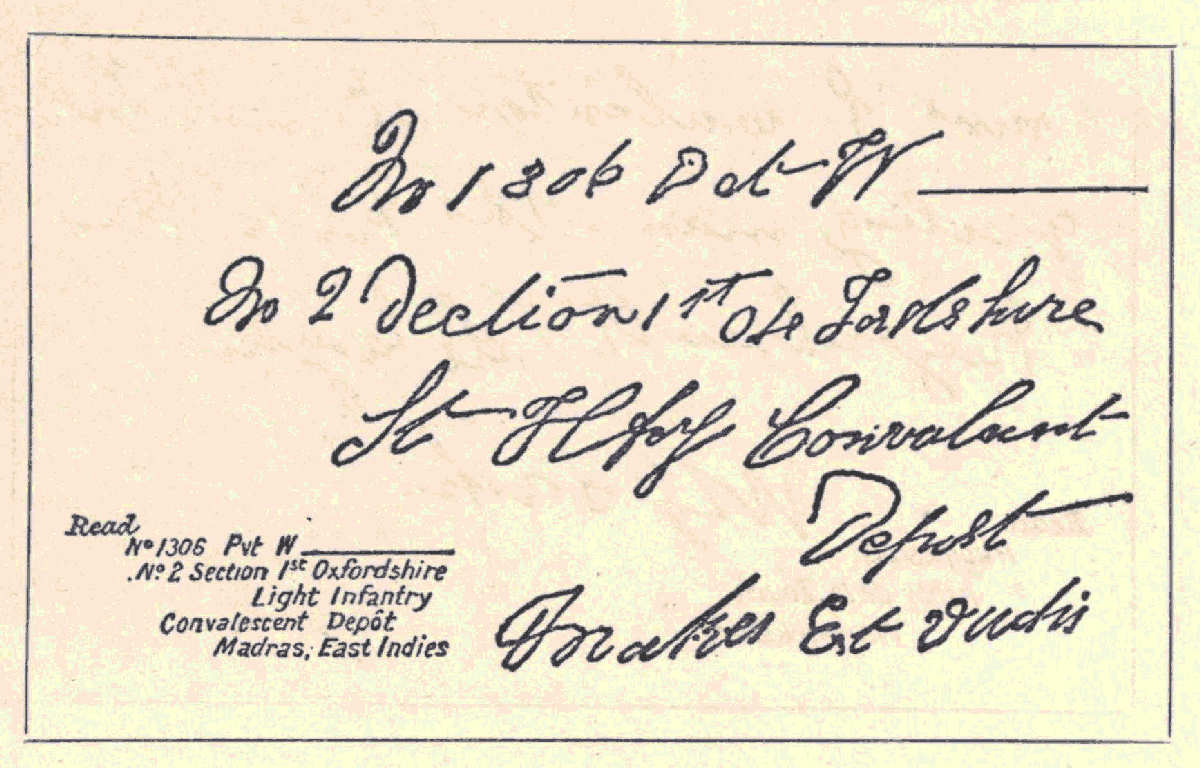 No 1306 Pvt W
No 2 Section 1st Oxe Fordshire
Convalesent
Depost
Read
No 1306 Pvt W
No 2 Section 1st Oxfordshire
Light Infantry
Convalescent Depôt
Madras, East Indies